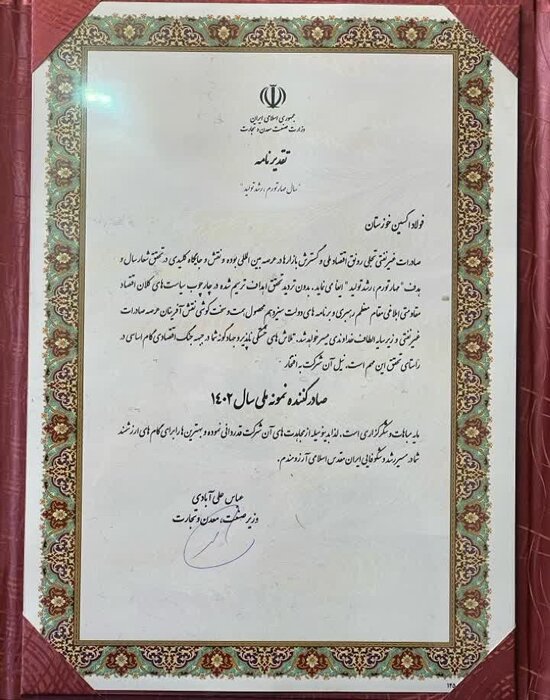 جمهوری اسلامی ایران
وزارت صنعت معدن و تجارت
تقدیرنامه
"سال مهار تورم، رشد تولید"
فولاد اکسین خوزستان
صادرات غیرنفتی تجلی رونق اقتصاد ملی و گسترش بازارها در عرصه بین المللی بوده و نقش و جایگاه کلیدی در تحقق شعار سال و
هدف "مهار تورم، رشد تولید" ایفا می نماید. بدون تردید تحقق اهداف ترسیم شده در چارچوب سیاست های کلان اقتصاد
مقاومتی ابلاغی مقام معظم رهبری و برنامه های دولت سیزدهم محصول همت و سخت کوشی نقش آفرینان عرصه صادرات
غیرنفتی و زیر سایه الطاف خداوندی میسر خواهد شد. تلاش های خستگی ناپذیر و جهادگونه شما در جبهه جنگ اقتصادی گام اساسی در
راستای تحقق این مهم است. نیل آن شرکت به افتخار
صادرکننده نمونه ملی سال ۱۴۰۲
مایه مباهات و شکرگزاری است. لذا بدینوسیله از مجاهدت های آن شرکت قدردانی نموده و بهترین ها را برای گام های ارزشمند
شما در مسیر رشد و شکوفایی ایران مقدس اسلامی آرزومندم.
عباس علی آبادی
وزیر صنعت، معدن و تجارت